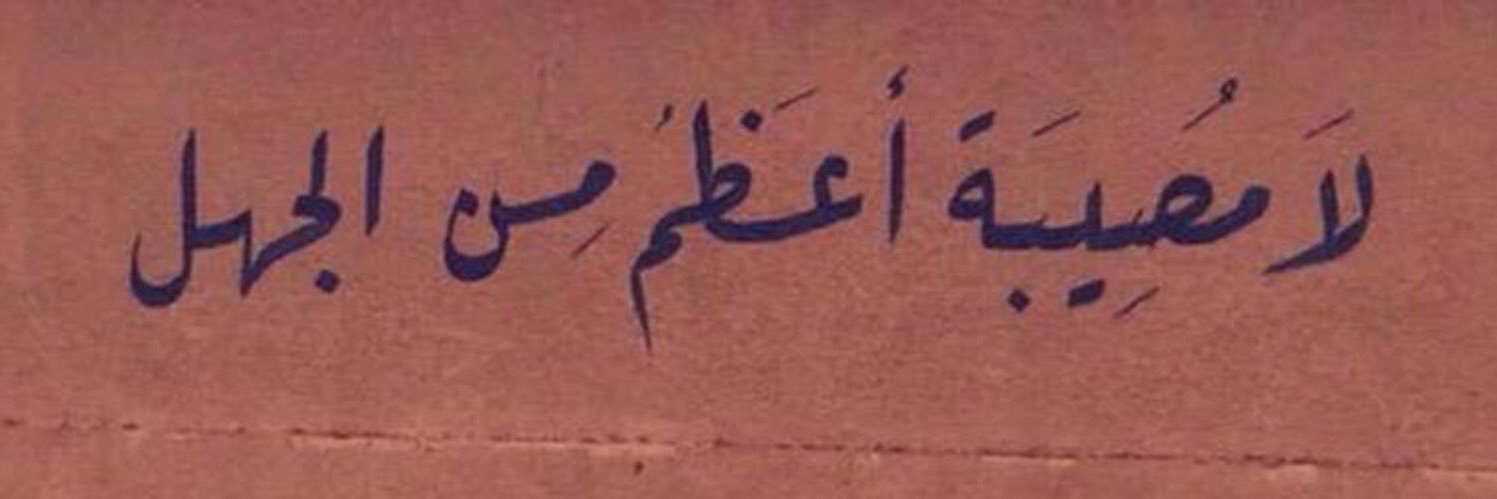 لَا مُصِيبَة أعَظمُ مِن الجهل